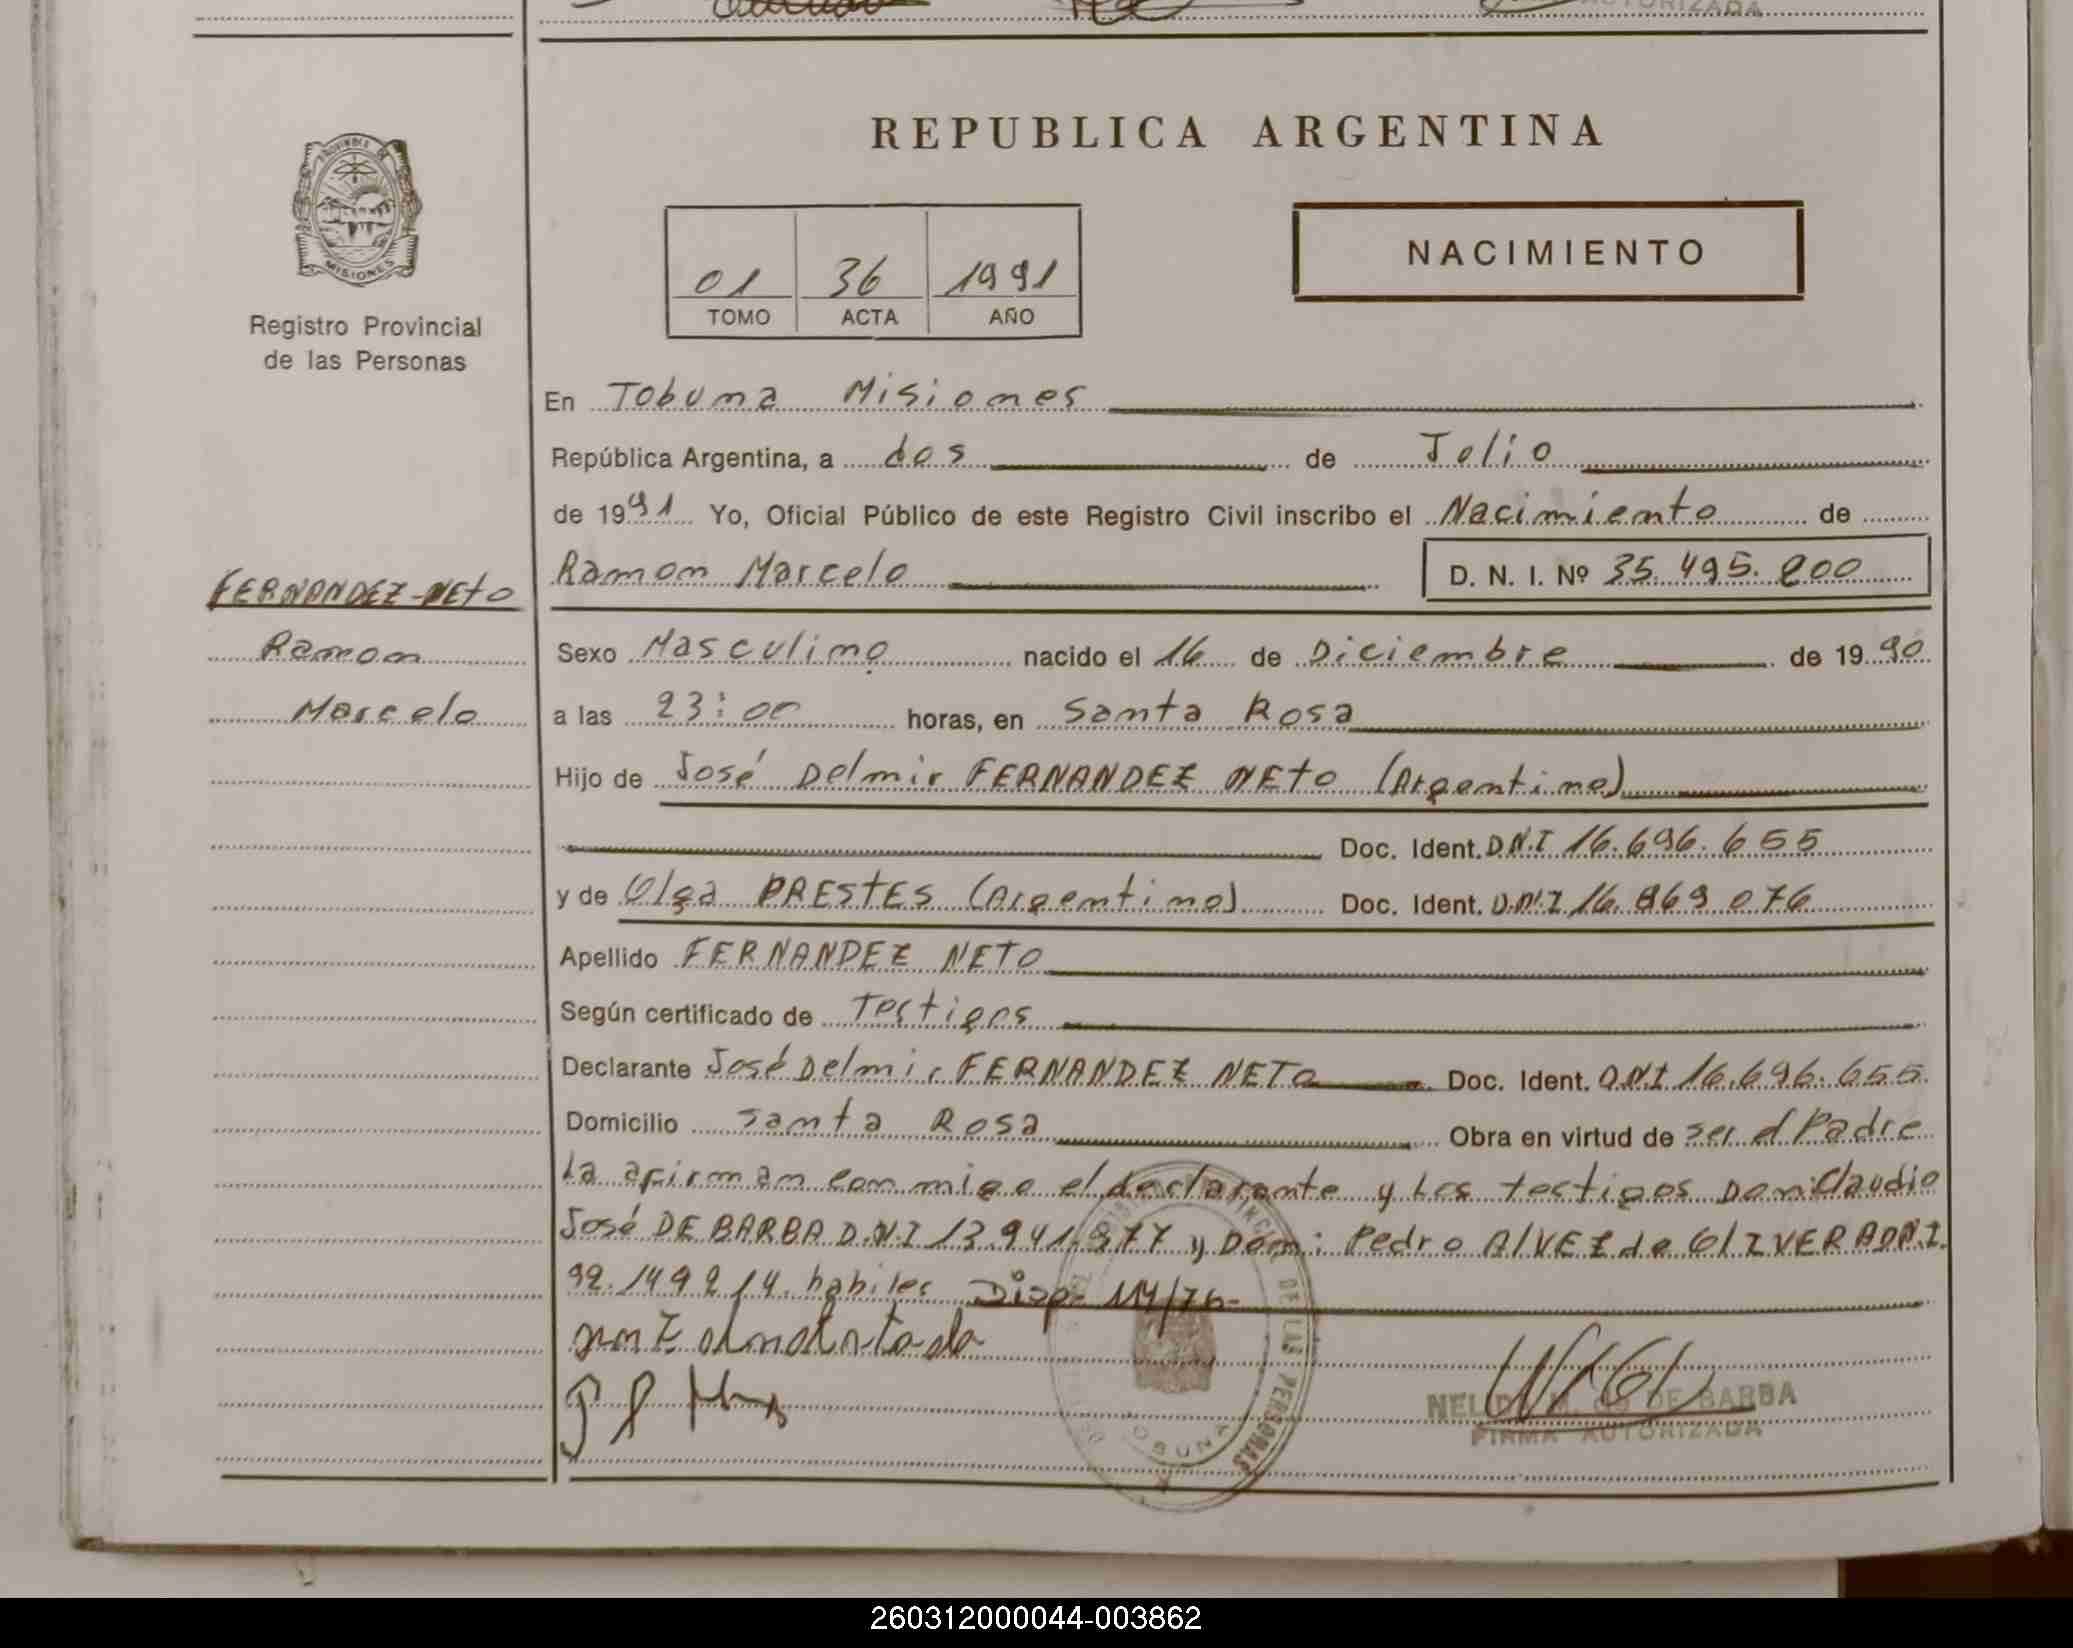 AUTORIZADA
REPUBLICA ARGENTINA
PROVINCIA DE
MISIONES
Registro Provincial
de las Personas
NACIMIENTO
01 36 1991
TOMO ACTA AÑO
En Tobuna Misiones
República Argentina, a dos de Jolio
de 1991 Yo, Oficial Público de este Registro Civil inscribo el Nacimiento de
Ramon Marcelo D. N. I. Nº 35.495.800
FERNANDEZ-NEto
Ramon
Marcelo
Sexo Masculino nacido el 16 de Diciembre de 1990
a las 23:00 horas, en Santa Rosa
Hijo de José Delmir FERNANDEZ NEto (Argentino)
Doc. Ident. D.N.I 16.696.655
y de Olga PREStES (Argentina) Doc. Ident. D.N.I 16.869.076
Apellido FERNANDEZ NETO
Según certificado de Testigos
Declarante José Delmir FERNANDEZ NETO Doc. Ident. D.N.I 16.696.655.
Domicilio Santa Rosa Obra en virtud de ser el Padre
La afirman con migo el declarante y los testigos Don: Claudio
José DE BARBA D.N.I 13.941.977 y Don: Pedro AlVEZ de OlIVERA D.N.I.
92.149214. habiles Disp. 114/76-
DE LAS PERSONAS
TOBUNA
DE BARBA
FIRMA AUTORIZADA
260312000044-003862